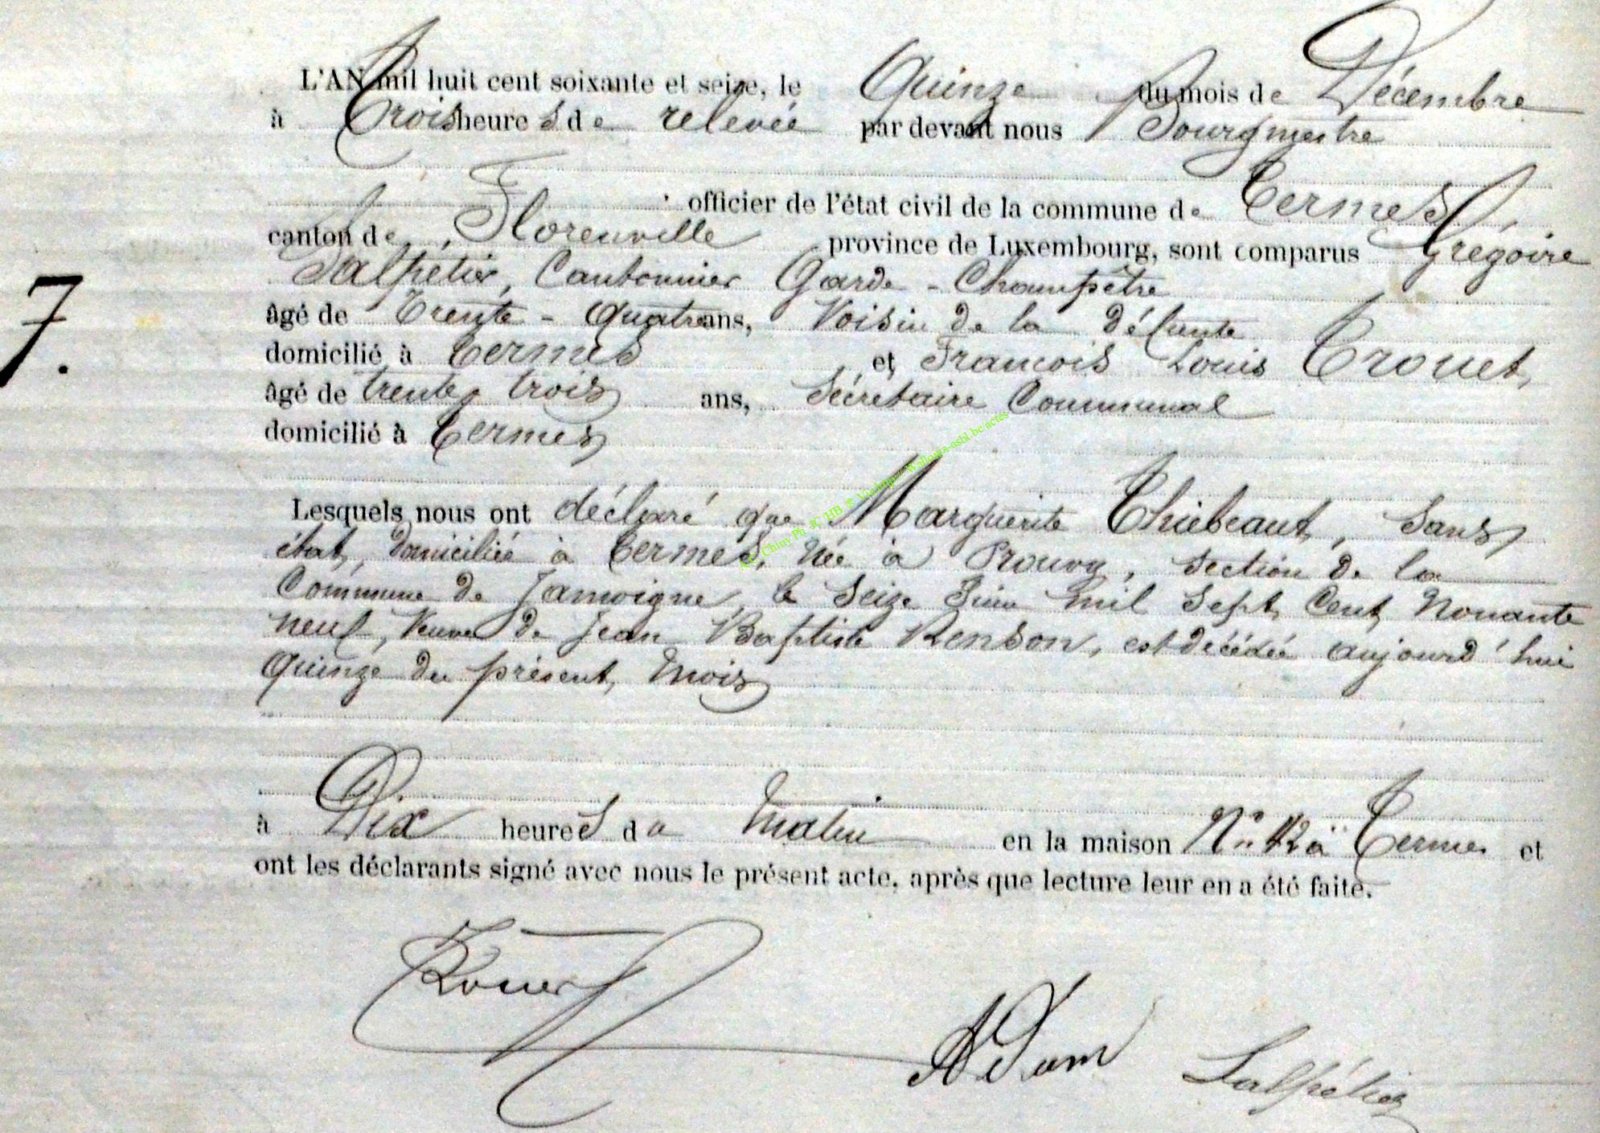 L'AN mil huit cent soixante et seize, le Quinze du mois de Décembre
à Trois heures de relevée par devant nous Bourgmestre
officier de l'état civil de la commune de Termes
canton de Florenville province de Luxembourg, sont comparus Grégoire
Salpétier, Cantonnier Garde - Champêtre
7.
âgé de Trente - Quatre ans, Voisin de la défunte
domicilié à Termes et François Louis Trouet,
âgé de trente trois ans, Sécretaire Communal
domicilié à Termes
Lesquels nous ont déclaré que Marguerite Thiebeaut, Sans
état, domiciliée à Termes, Née à Prouvy, Section de la
Commune de Jamoigne, le Seize Juin mil Sept Cent Nonante
neuf, Veuve de Jean Baptiste Renson, est décédée aujourd'hui
Quinze du présent mois
à Dix heures du Matin en la maison N° 12 à Termes et
ont les déclarants signé avec nous le présent acte, après que lecture leur en a été faite.
Trouet
Adam Salpétier